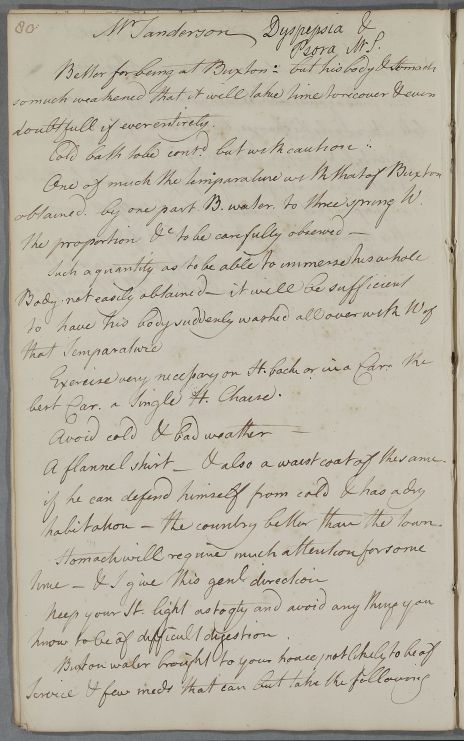 80
Mr. Sanderson Dyspepsia &
Psora Mr. S.
Better for being at Buxton: but his body & stomach
so much weakened that it will take time to recover & even
doubtfull if ever entirely.
Cold bath to be contd. but with caution:
One of much the temparature wt. that of Buxton
obtained by one part B. water to three spring Wr.
the proportion &c to be carefully observed —
Such a quantity as to be able to immerse his whole
Body not easily obtained — it will be sufficient
to have his body suddenly washed all over with Wr of
that Temparature
Exercise very necessary on H. back or in a Car: the
best Car. a Single H. Chaise.
Avoid cold & bad weather —
A flannel shirt — & also a waistcoat of the same.
if he can defend himself from cold & has a dry
habitation — the country better than the town.
Stomach will require much attention for some
time — & I give this genl. direction
Keep your St. light as to qty and avoid any thing you
know to be of difficult digestion.
Buxton water brought to your house, not likely to be of
Service & few meds that can but take the following